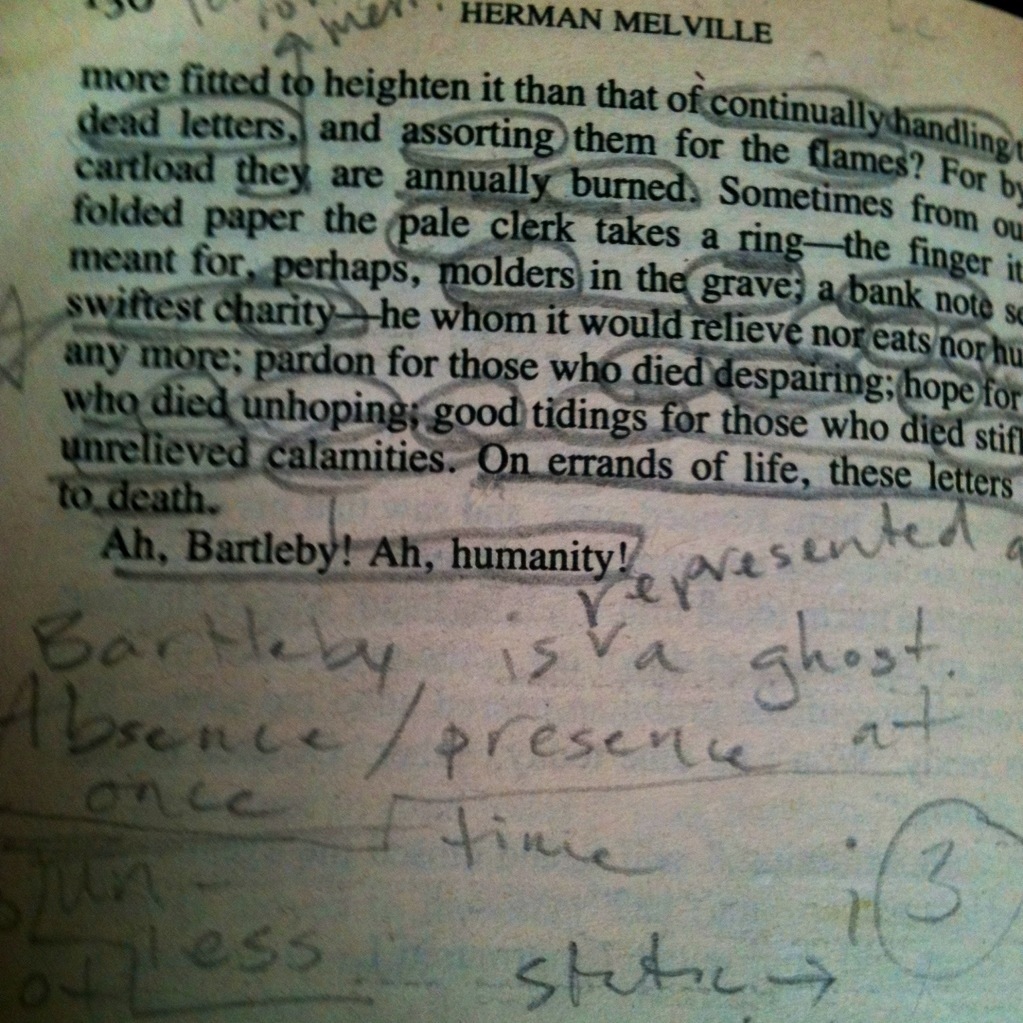 HERMAN MELVILLE
more fitted to heighten it than that of continually handling
dead letters, and assorting them for the flames? For by
cartload they are annually burned. Sometimes from ou
folded paper the pale clerk takes a ring—the finger it
meant for, perhaps, molders in the grave; a bank note se
swiftest charity—he whom it would relieve nor eats nor hu
any more; pardon for those who died despairing; hope for
who died unhoping; good tidings for those who died stifl
unrelieved calamities. On errands of life, these letters
to death.
Ah, Bartleby! Ah, humanity!
represented a
Bartleby is a ghost.
Absence/presence at
once
time
3
un-
less
static →